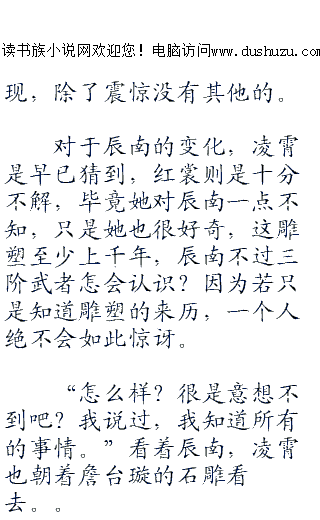 读书族小说网欢迎您！电脑访问www.dushuzu.com
现，除了震惊没有其他的。
对于辰南的变化，凌霄
是早已猜到，红裳则是十分
不解，毕竟她对辰南一点不
知，只是她也很好奇，这雕
塑至少上千年，辰南不过三
阶武者怎会认识？因为若只
是知道雕塑的来历，一个人
绝不会如此惊讶。
“怎么样？很是意想不
到吧？我说过，我知道所有
的事情。”看着辰南，凌霄
也朝着詹台璇的石雕看
去。。